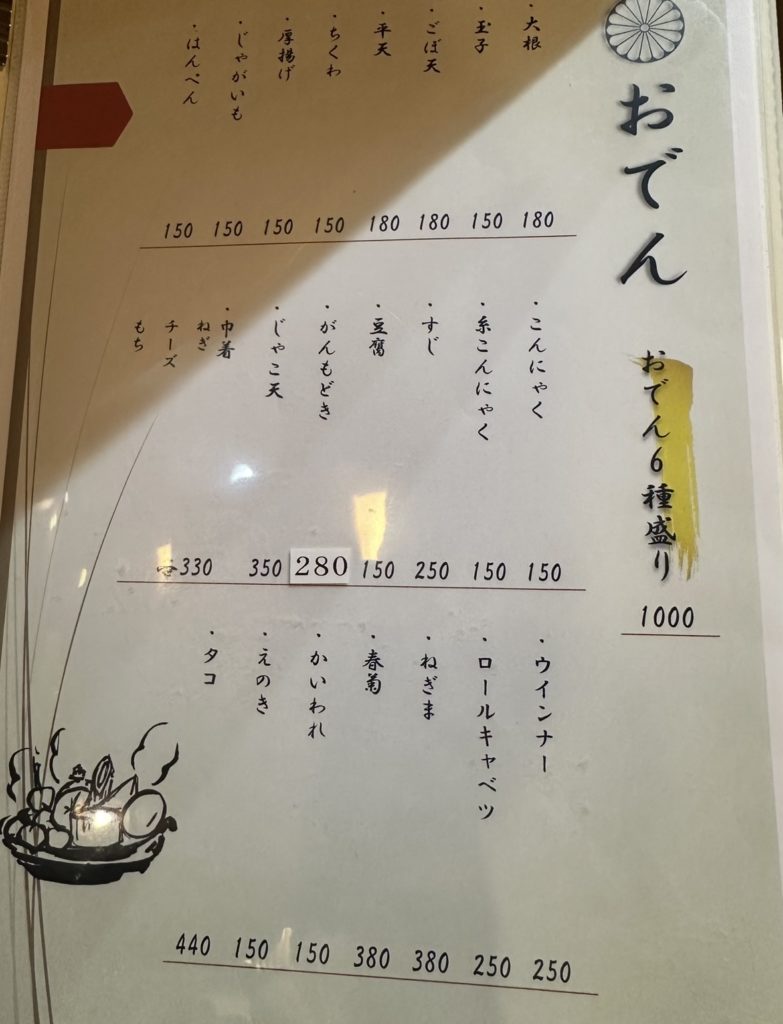 おでん
おでん6種盛り
1000
・大根
180
・玉子
150
・ごぼ天
180
・平天
180
・ちくわ
150
・厚揚げ
150
・じゃがいも
150
・はんぺん
150
・こんにゃく
150
・糸こんにゃく
150
・すじ
250
・豆腐
150
・がんもどき
280
・じゃこ天
350
・巾着
ねぎ
チーズ
もち
各330
・ウインナー
250
・ロールキャベツ
250
・ねぎま
380
・春菊
380
・かいわれ
150
・えのき
150
・タコ
440